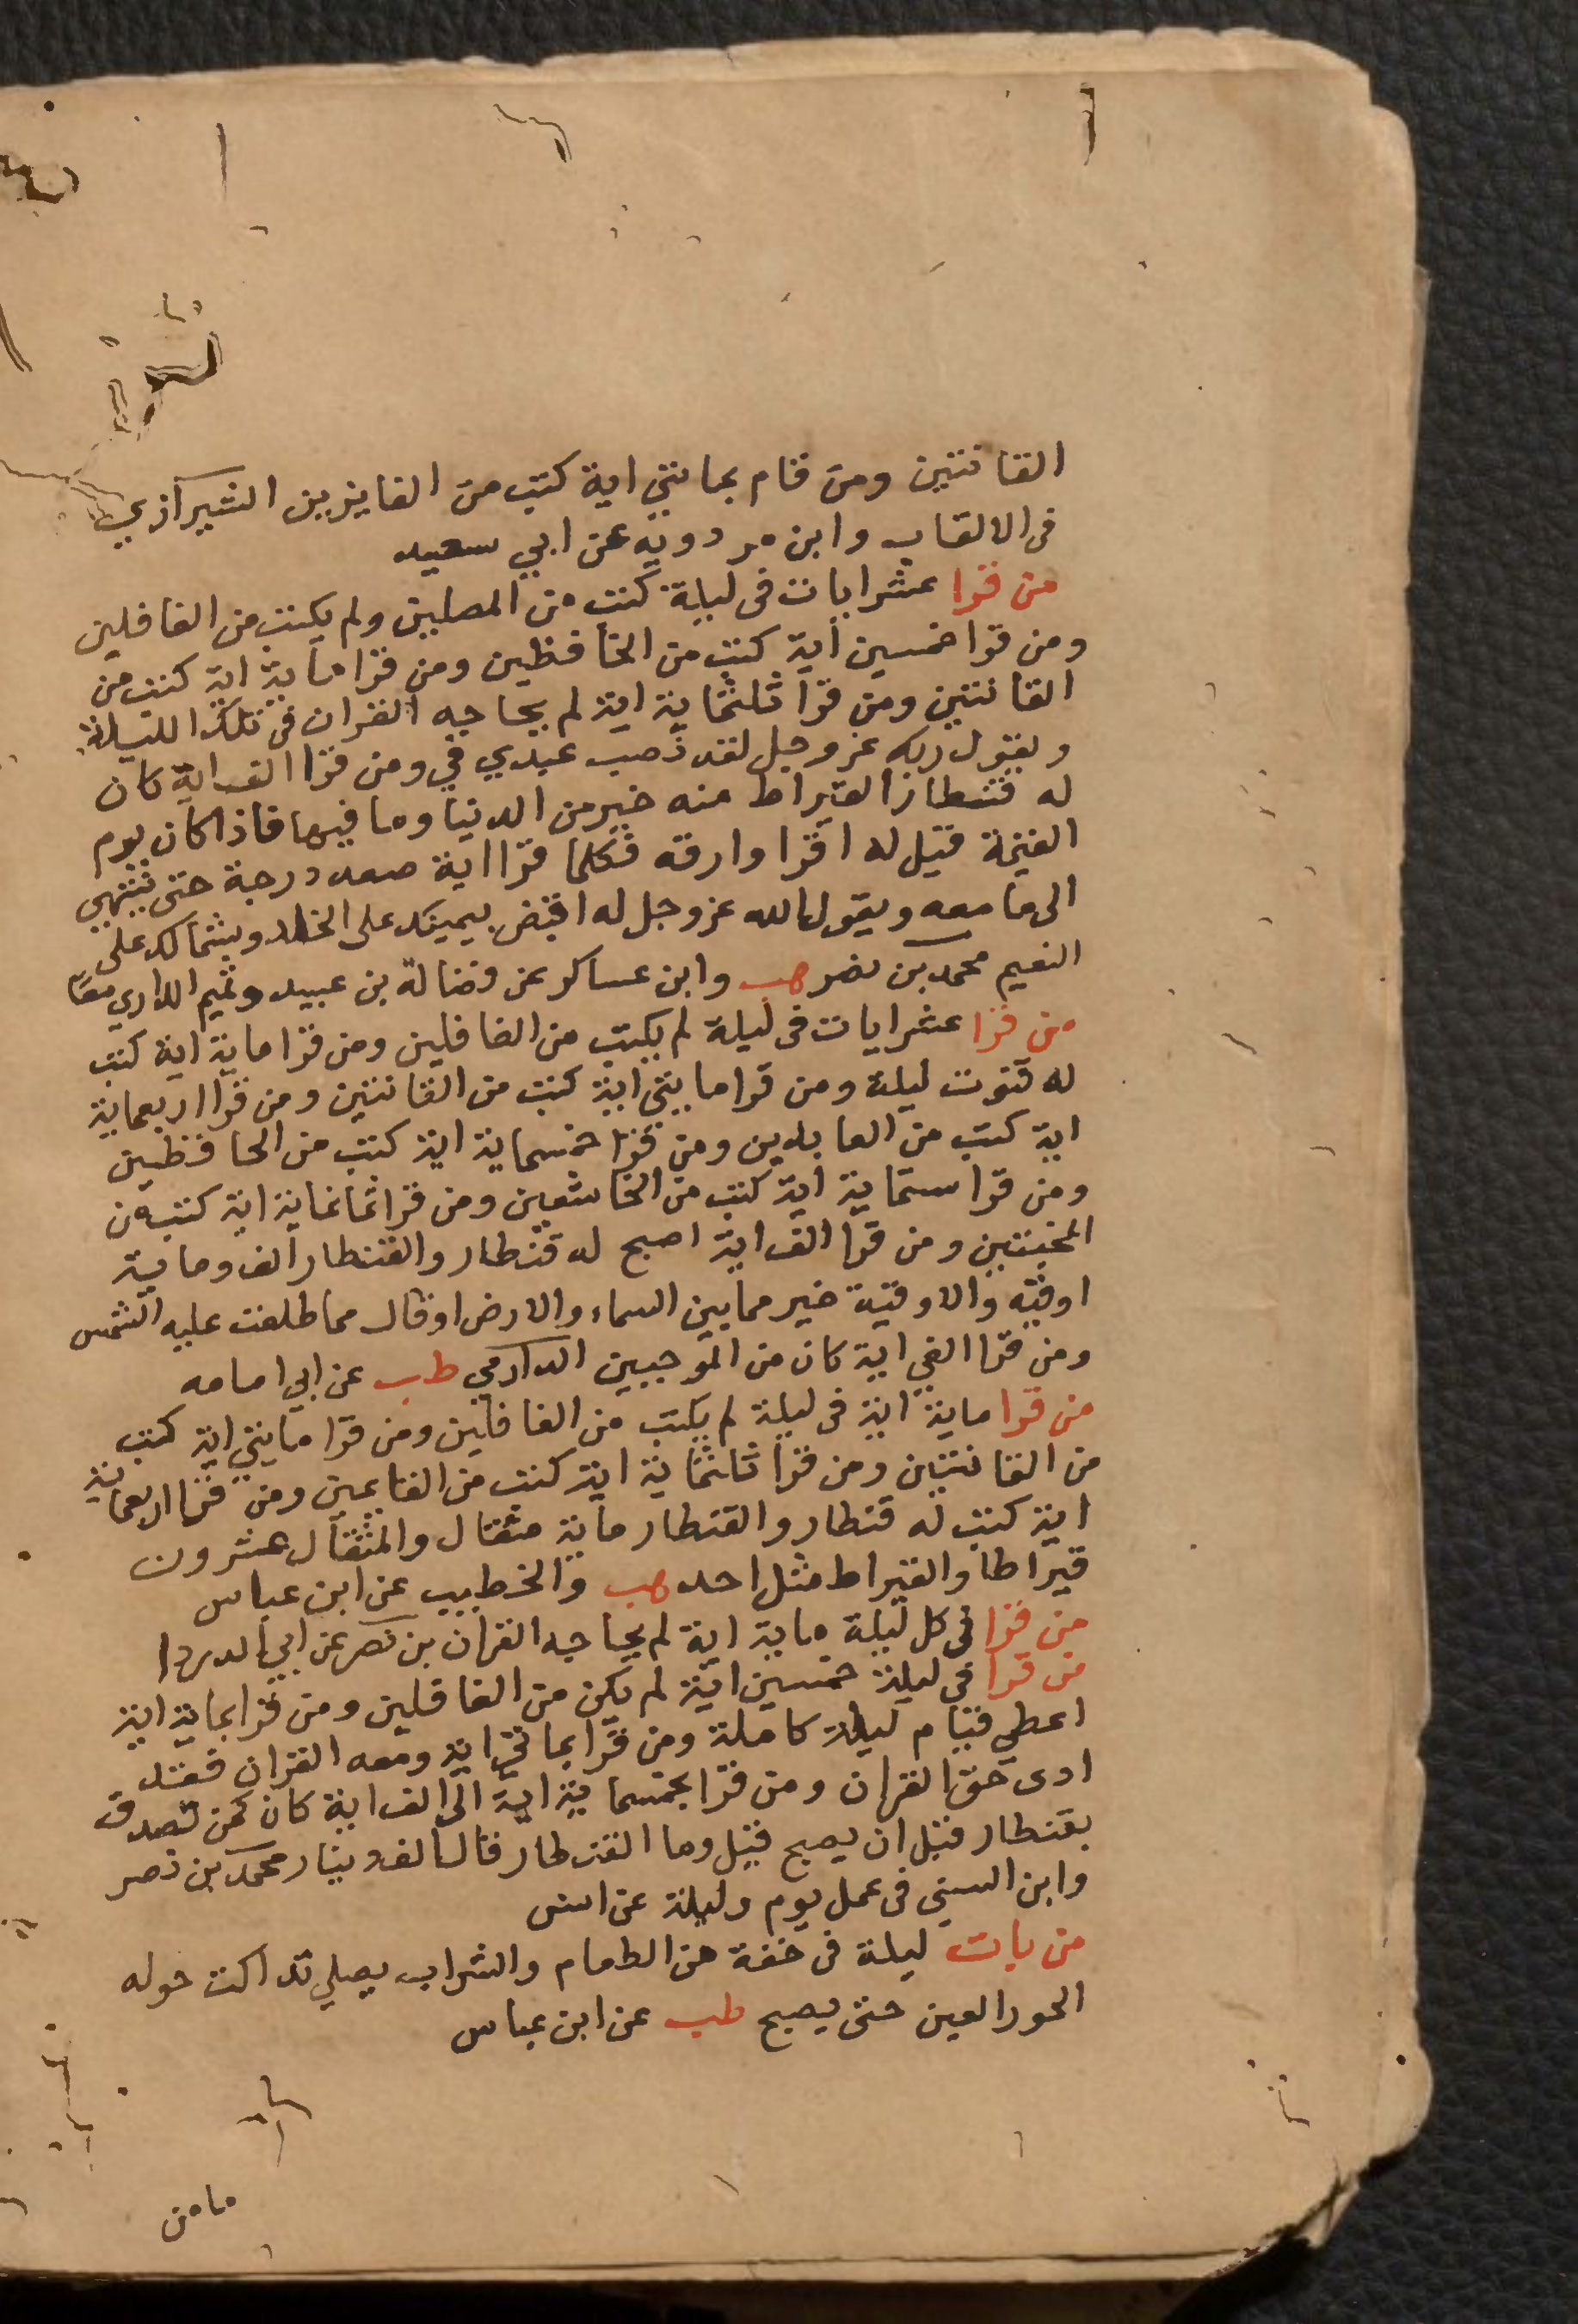 القانتين ومن قام بمائتي اية كتب من الفايزين الشيرازي
في الالقاب وابن مردويه عن ابي سعيد
من قرا عشر ايات في ليلة كتب من المصلين ولم يكتب من الغافلين
ومن قرا خمسين اية كتب من الحافظين ومن قرا ماية اية كتب من
القانتين ومن قرا ثلثماية اية لم يحاجه القران في تلك الليلة
ويقول ربه عز وجل لقد نصب عبدي في ومن قرا الف اية كان
له قنطار القيراط منه خير من الدنيا وما فيها فاذا كان يوم
القيمة قيل له اقرا وارقه فكلما قرا اية صعد درجة حتى ينتهي
الى ما معه ويقول الله عز وجل له اقبض بيمينك على الخلد وبشمالك على
النعيم محمد بن نصر هب وابن عساكر عن فضالة بن عبيد وتميم الداري معًا
من قرا عشر ايات في ليلة لم يكتب من الغافلين ومن قرا ماية اية كتب
له قنوت ليلة ومن قرا مايتي اية كتب من القانتين ومن قرا اربعماية
اية كتب من العابدين ومن قرا خمسماية اية كتب من الحافظين
ومن قرا ستماية اية كتب من الخاشعين ومن قرا ثمانماية اية كتب من
المخبتين ومن قرا الف اية اصبح له قنطار والقنطار الف وماية
اوقية والاوقية خير مما بين السماء والارض او قال مما طلعت عليه الشمس
ومن قرا الفي اية كان من الموجبين الدارمي طب عن ابي امامه
من قرا ماية اية في ليلة لم يكتب من الغافلين ومن قرا مايتي اية كتب
من القانتين ومن قرا ثلثماية اية كتب من القايمين ومن قرا اربعماية
اية كتب له قنطار والقنطار ماية مثقال والمثقال عشرون
قيراطا والقيراط مثل احد هب والخطيب عن ابن عباس
من قرا في كل ليلة ماية اية لم يحاجه القران بن نصر عن ابي الدردا
من قرا في ليلة خمسين اية لم يكن من الغافلين ومن قرا بماية اية
اعطي قيام ليلة كاملة ومن قرا بمائتي اية ومعه القران فقد
ادى حق القران ومن قرا بخمسماية اية الى الف اية كان كمن تصدق
بقنطار قبل ان يصبح قيل وما القنطار قال الف دينار محمد بن نصر
وابن السني في عمل يوم وليلة عن انس
من بات ليلة في خفة من الطعام والشراب يصلي تداكت حوله
الحور العين حتى يصبح طب عن ابن عباس
ما من